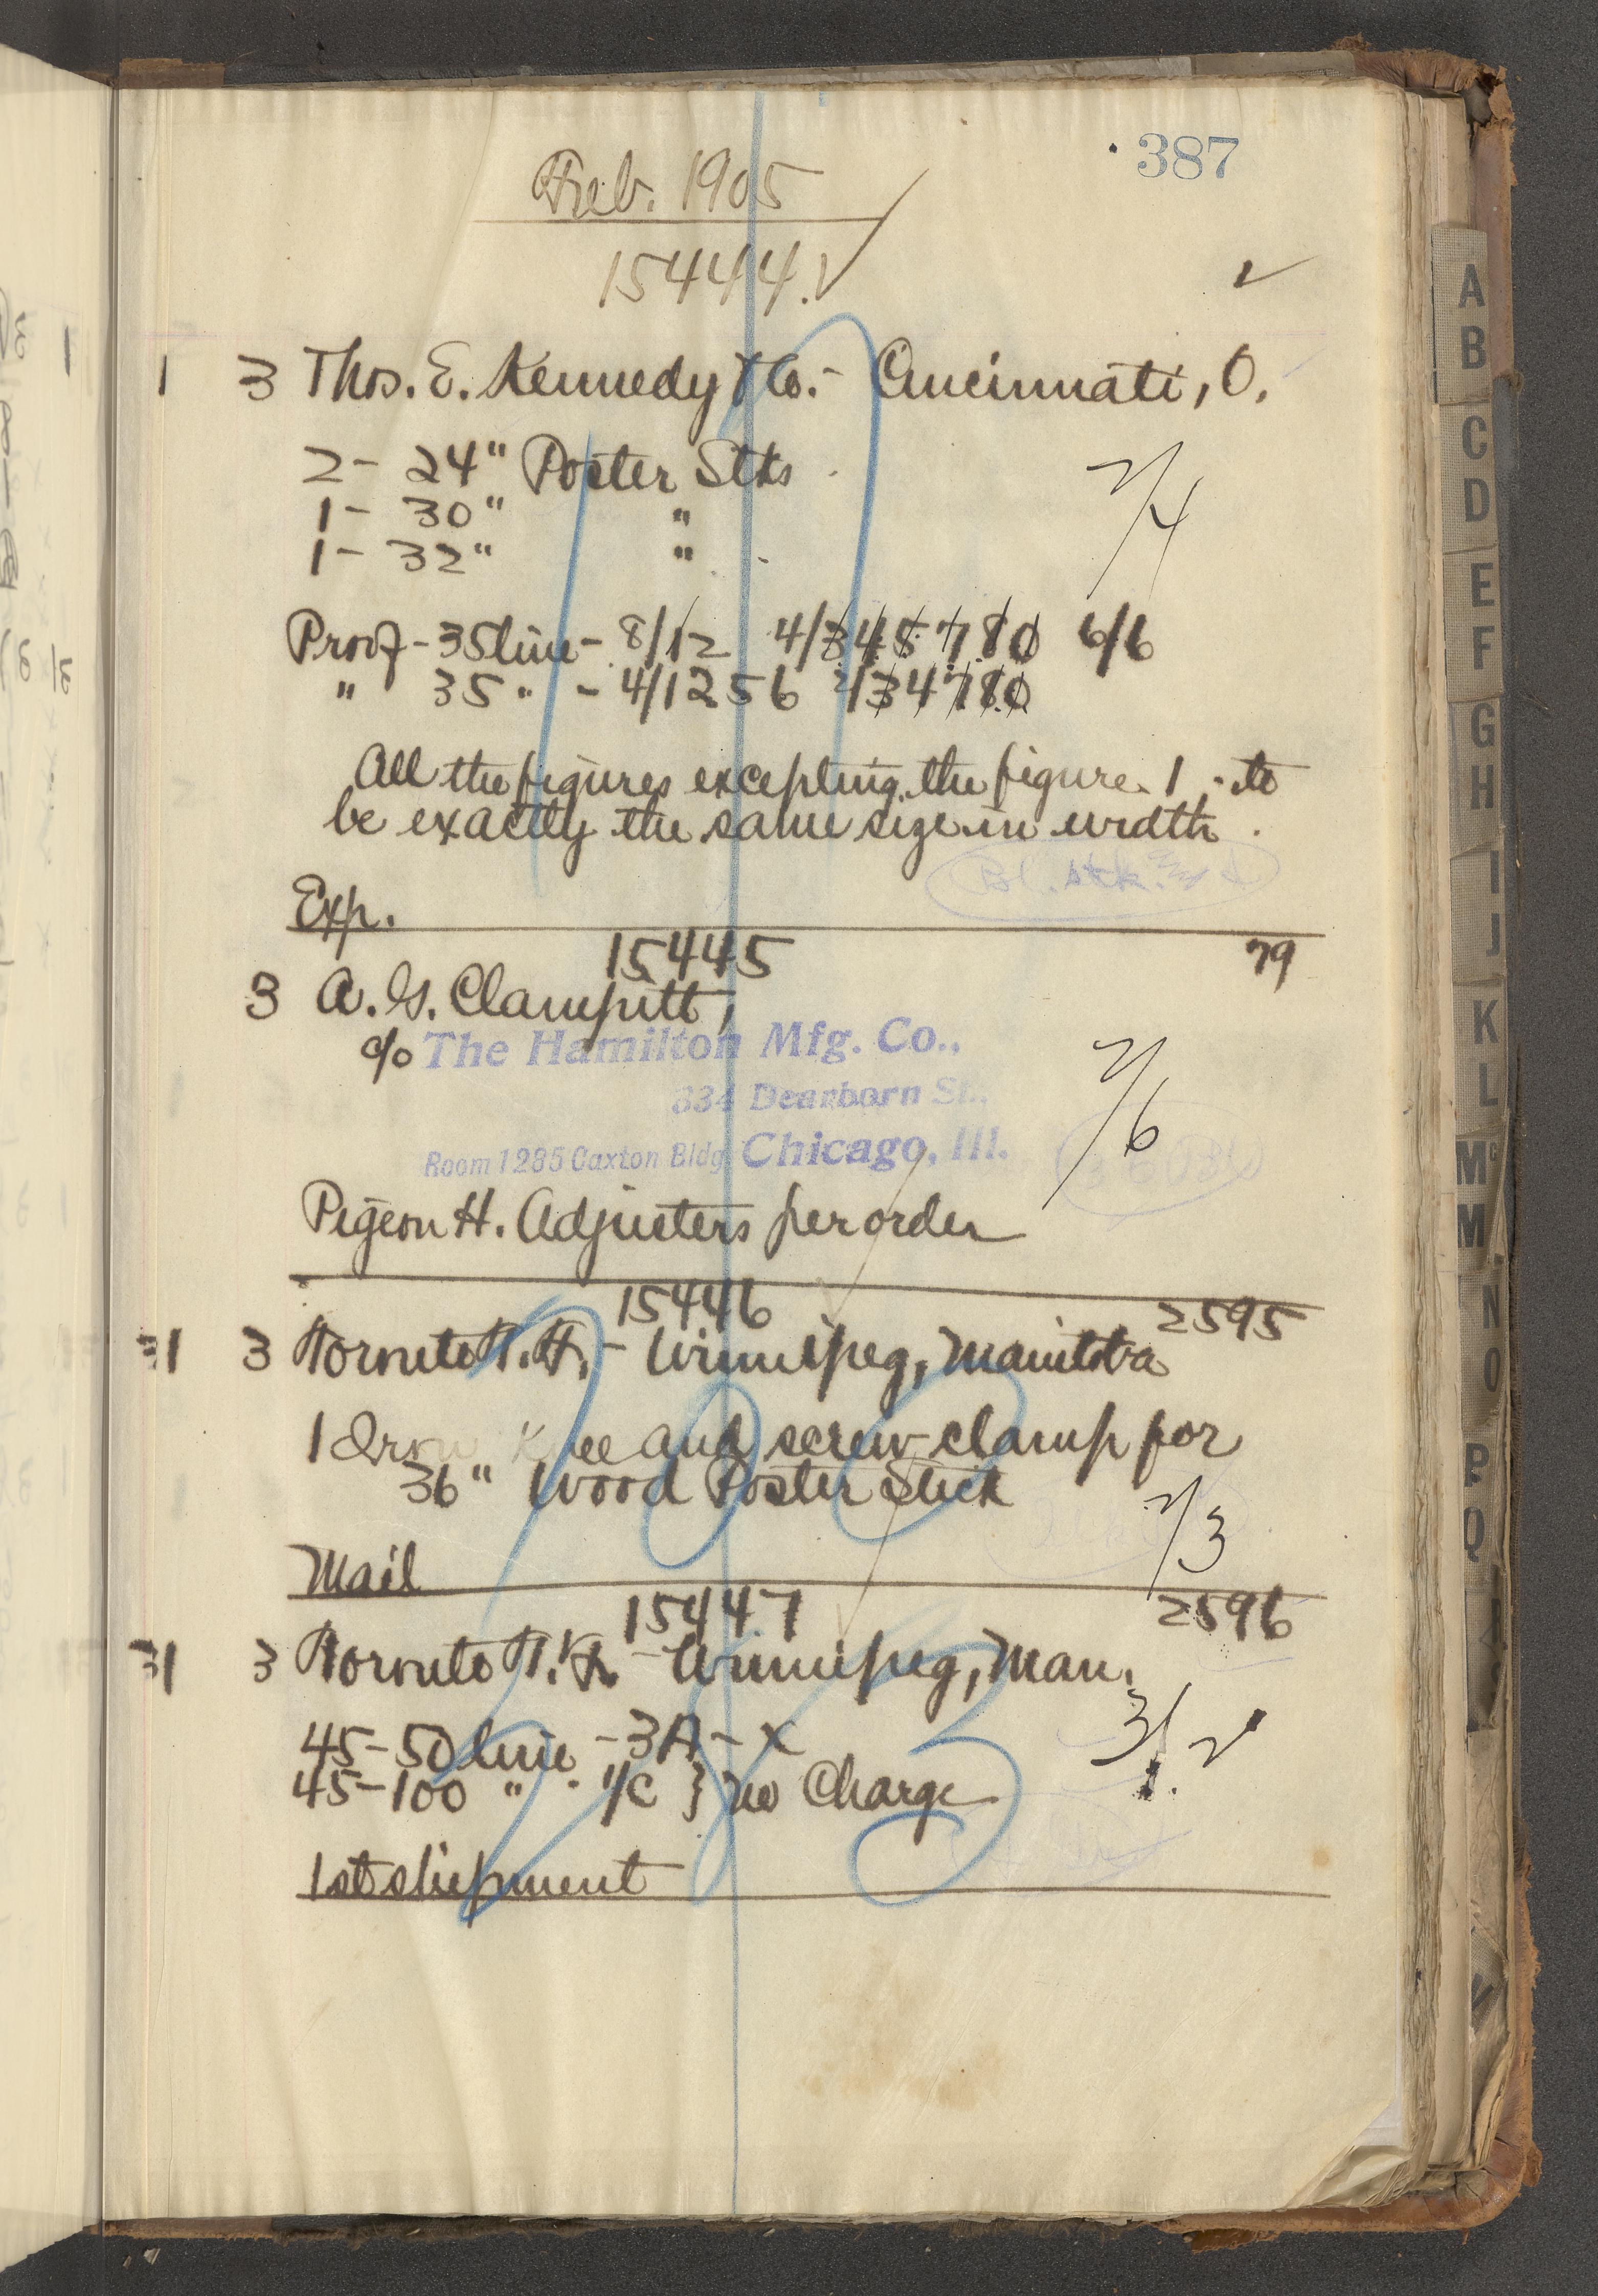 387
Feb. 1905
15444. ✓
1 3 Thos. E. Kennedy & Co. - Cincinnati, O.
2 - 24" Poster Stks
1 - 30" "
1 - 32" "
2/4
Proof - 35 line - 8/12 4/3 4 5 7 8 0 6/6
" 35 " - 4/1 2 5 6 2/3 4 7 8 0
All the figures excepting the figure 1 - to
be exactly the same size in width.
Exp.
15445 79
3 A. G. Clampitt,
c/o The Hamilton Mfg. Co.,
334 Dearborn St.,
Room 1285 Caxton Bldg. Chicago, Ill.
2/6
Pigeon H. Adjusters per order
15446 2595
1 3 Toronto T. F. - Winnipeg, Manitoba
1 Iron Knee and screw clamp for
36" Wood Poster Stick
2/3
Mail
15447 2596
1 3 Toronto T. F. - Winnipeg, Man.
45 - 50 line - 3A - X
45 - 100 " - 1/C } No Charge
3/
1st shipment
A
B
C
D
E
F
G
H
I
J
K
L
Mc
M
N
O
P
Q